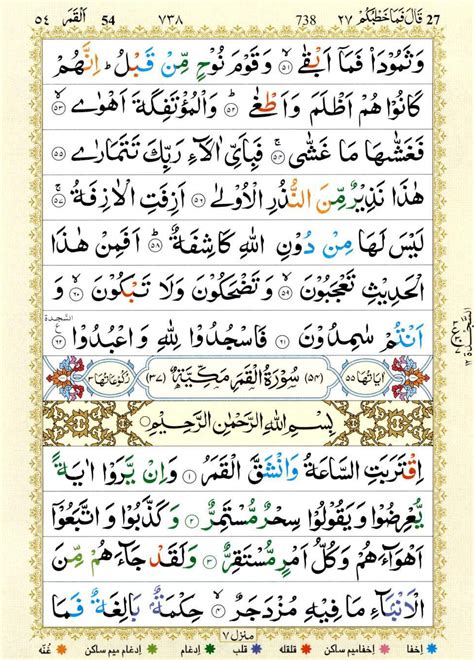 27 قَالَ فَمَا خَطْبُكُمْ ٢٧ 738 ٧٣٨ 54 اَلْقَمَر ٥٤
وَثَمُوْدَا۟ فَمَآ اَبْقٰى ۙ﴿٥١﴾ وَقَوْمَ نُوْحٍ مِّنْ قَبْلُ ؕ اِنَّهُمْ
كَانُوْا هُمْ اَظْلَمَ وَاَطْغٰى ؕ﴿٥٢﴾ وَالْمُؤْتَفِكَةَ اَهْوٰى ۙ﴿٥٣﴾
فَغَشّٰىهَا مَا غَشّٰى ۚ﴿٥٤﴾ فَبِاَىِّ اٰلَآءِ رَبِّكَ تَتَمَارٰى ﴿٥٥﴾
هٰذَا نَذِيْرٌ مِّنَ النُّذُرِ الْاُوْلٰى ﴿٥٦﴾ اَزِفَتِ الْاٰزِفَةُ ۚ﴿٥٧﴾
لَيْسَ لَهَا مِنْ دُوْنِ اللّٰهِ كَاشِفَةٌ ؕ﴿٥٨﴾ اَفَمِنْ هٰذَا
الْحَدِيْثِ تَعْجَبُوْنَ ۙ﴿٥٩﴾ وَتَضْحَكُوْنَ وَلَا تَبْكُوْنَ ۙ﴿٦٠﴾ وَ
اَنْتُمْ سٰمِدُوْنَ ﴿٦١﴾ فَاسْجُدُوْا لِلّٰهِ وَاعْبُدُوْا ﴿٦٢﴾ السَّجْدَة ع
اٰيَاتُهَا ٥٥ (٥٤) سُوْرَةُ الْقَمَرِ مَكِّيَّةٌ (٣٧) رُكُوْعَاتُهَا ٣
بِسْمِ اللّٰهِ الرَّحْمٰنِ الرَّحِيْمِ
اِقْتَرَبَتِ السَّاعَةُ وَانْشَقَّ الْقَمَرُ ﴿١﴾ وَاِنْ يَّرَوْا اٰيَةً
يُّعْرِضُوْا وَيَقُوْلُوْا سِحْرٌ مُّسْتَمِرٌّ ﴿٢﴾ وَكَذَّبُوْا وَاتَّبَعُوْٓا
اَهْوَآءَهُمْ وَكُلُّ اَمْرٍ مُّسْتَقِرٌّ ﴿٣﴾ وَلَقَدْ جَآءَهُمْ مِّنَ
الْاَنْۢبَآءِ مَا فِيْهِ مُزْدَجَرٌ ۙ﴿٤﴾ حِكْمَةٌۢ بَالِغَةٌ فَمَا
منزل ٧
اِخفا اِخفا میم ساکن قلقله قلب اِدغام اِدغام میم ساکن غُنّه